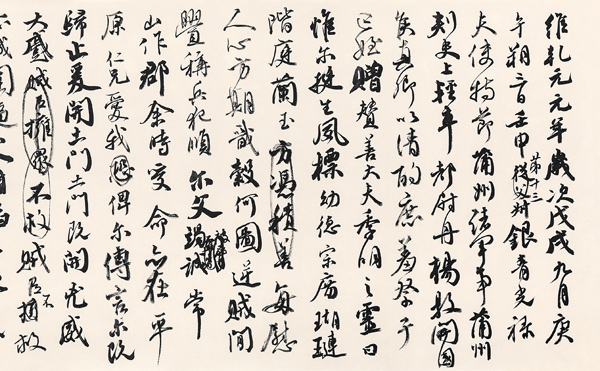 維乾元元年歲次戊戌九月庚
午朔三日壬申第十三從父銀青光祿
夫使持節蒲州諸軍事蒲州
刺史上輕車都尉丹楊縣開國
侯真卿以清酌庶羞祭于
亡姪贈贊善大夫季明之靈曰
惟爾挺生夙標幼德宗廟瑚璉
階庭蘭玉方憑積善每慰
人心方期戩穀何圖逆賊閒
釁稱兵犯順爾父竭誠常
山作郡余時受命亦在平
原仁兄愛我恐俾爾傳言爾既
歸止爰開土門土門既開兇威
大蹙賊臣擁眾不救賊臣不擁救